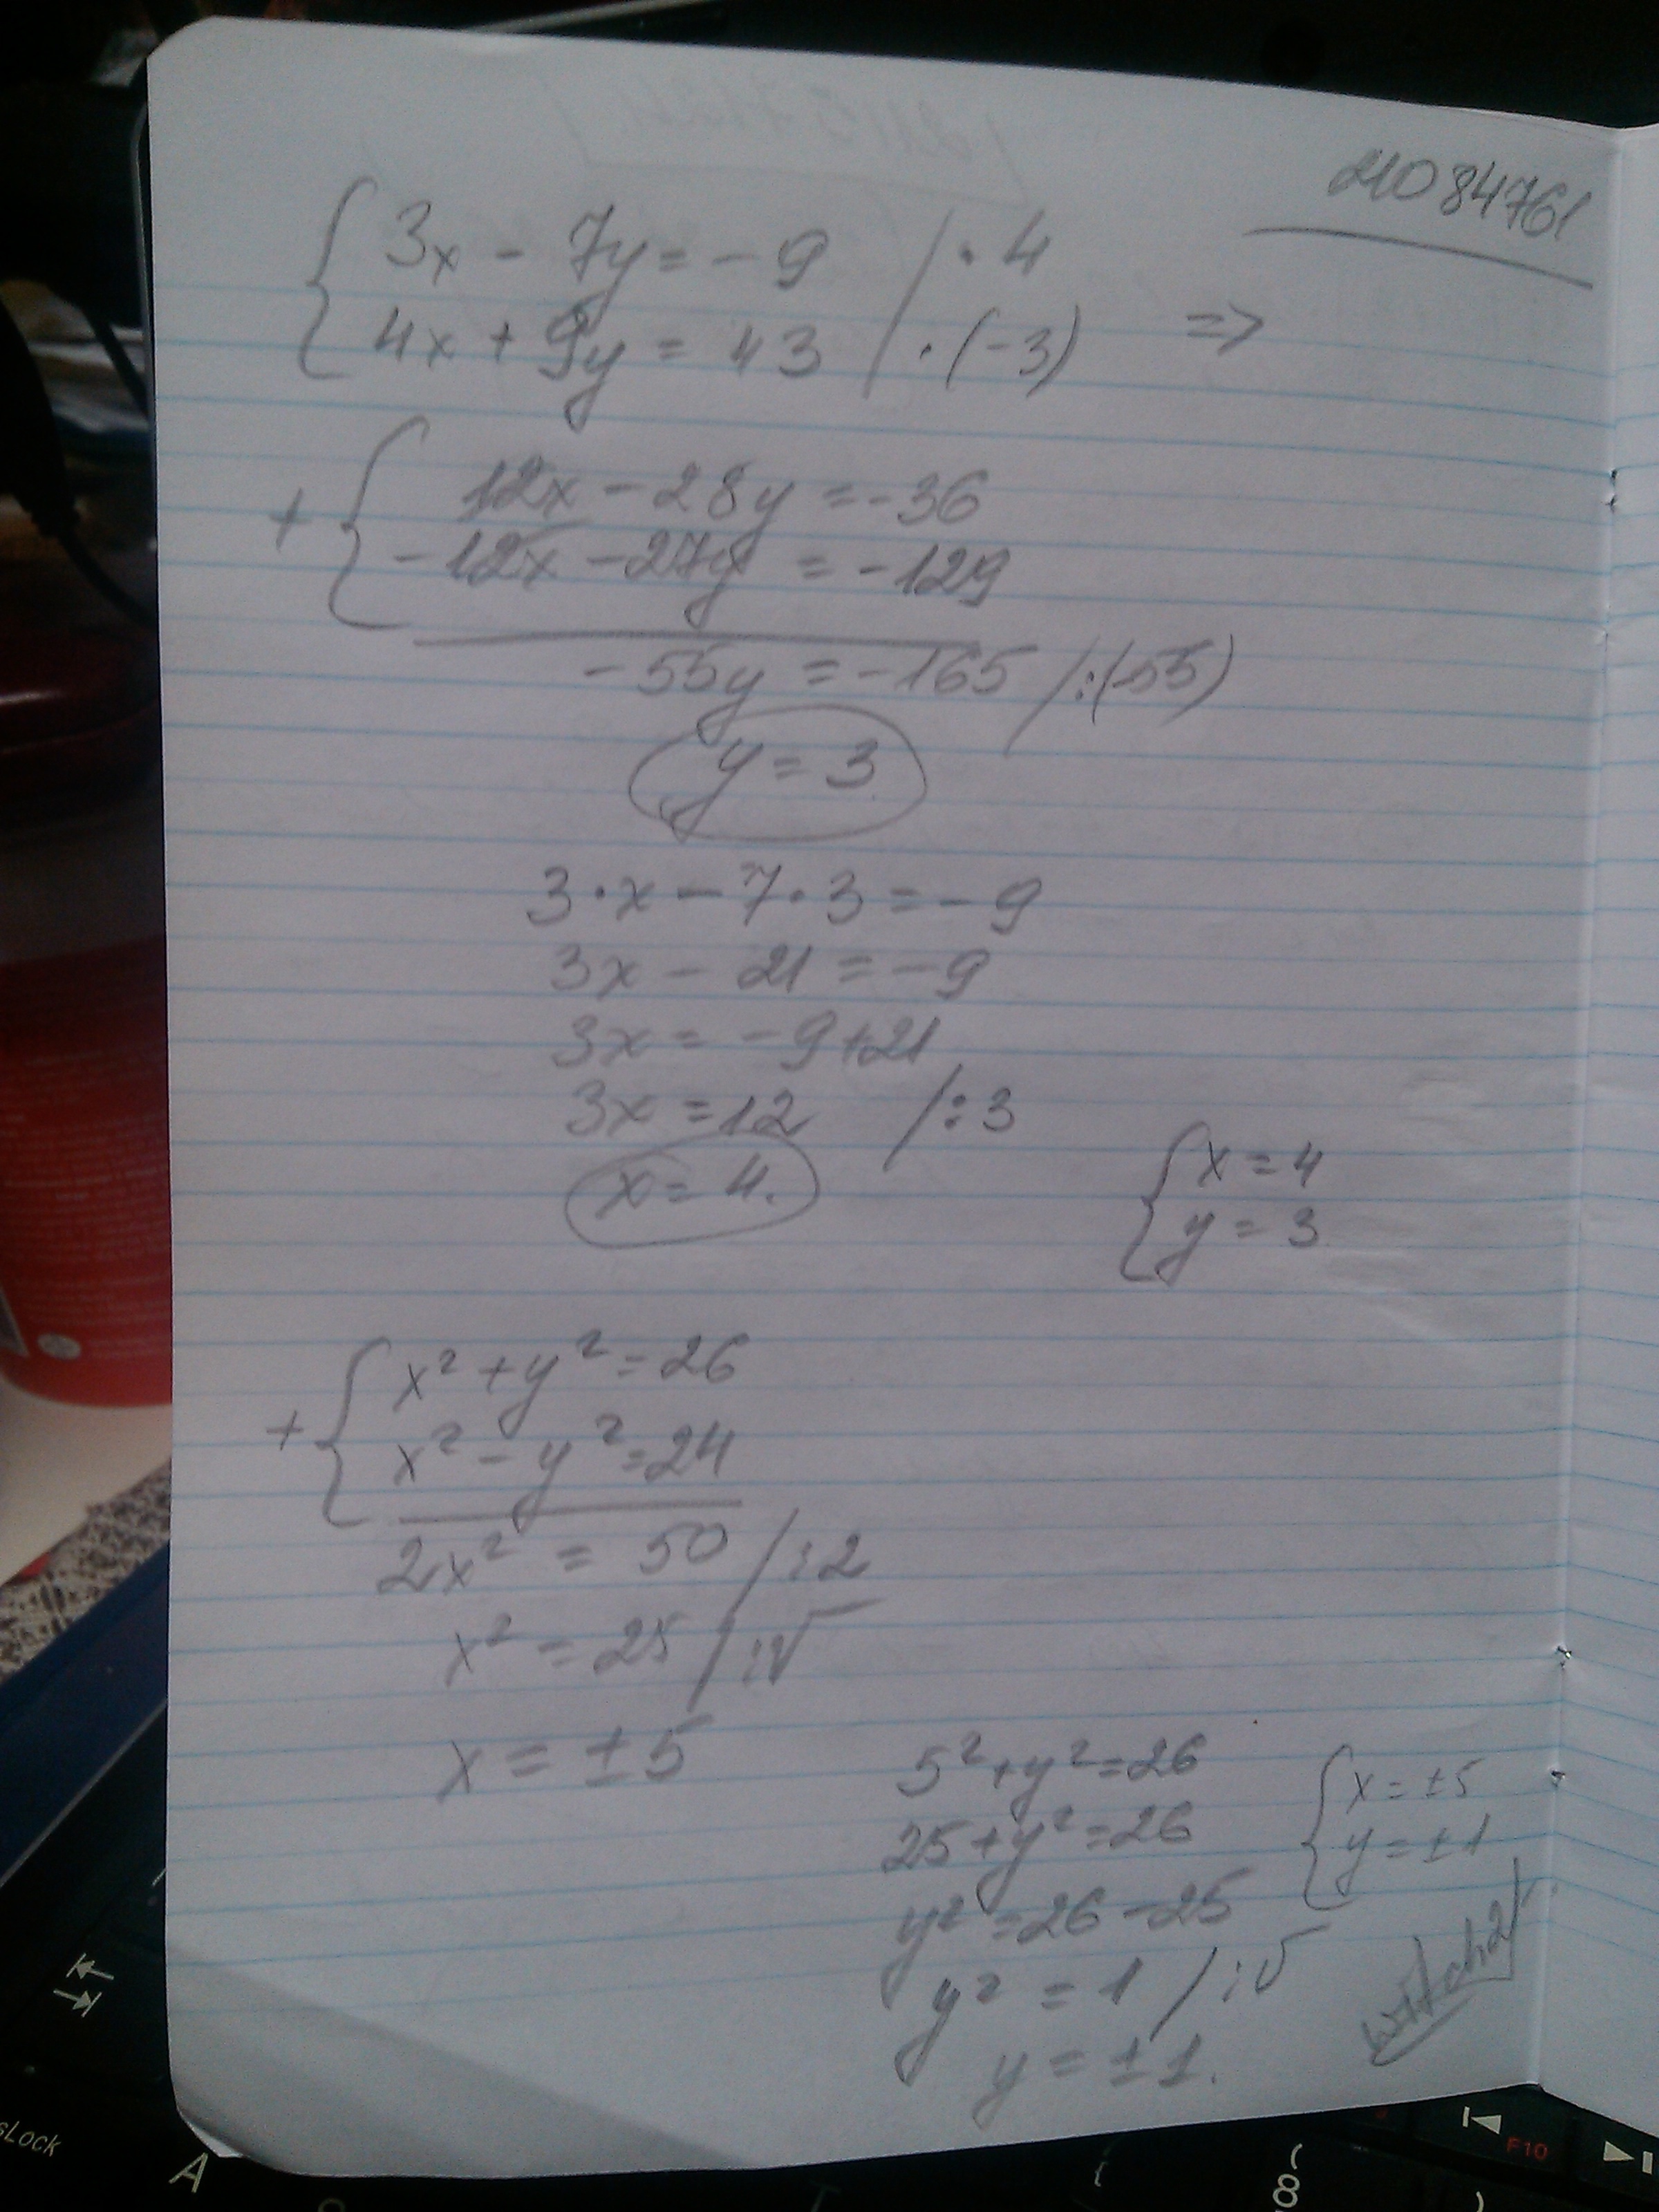 21084761
{ 3x - 7y = -9 / · 4
{ 4x + 9y = 43 / · (-3) =>
+ { 12x - 28y = -36
{ -12x - 27y = -129
-55y = -165 / :(-55)
y = 3
3·x - 7·3 = -9
3x - 21 = -9
3x = -9+21
3x = 12 / :3
x = 4.
{ x = 4
{ y = 3
+ { x² + y² = 26
{ x² - y² = 24
2x² = 50 / :2
x² = 25 / :√
x = ±5
5² + y² = 26
25 + y² = 26
y² = 26 - 25
y² = 1 / :√
y = ±1.
{ x = ±5
{ y = ±1
A
F10
8